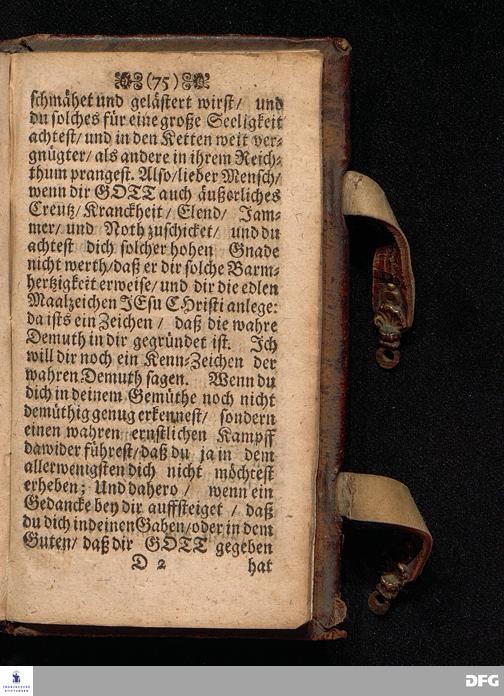 (75)
schmähet und gelästert wirst/ und
du solches für eine große Seeligkeit
achtest/ und in den Ketten weit ver-
gnügter/ als andere in ihrem Reich-
thum prangest. Also/ lieber Mensch/
wenn dir GOTT auch äußerliches
Creutz/ Kranckheit/ Elend/ Jam-
mer/ und Noth zuschicket/ und du
achtest dich solcher hohen Gnade
nicht werth/ daß er dir solche Barm-
hertzigkeit erweise/ und dir die edlen
Maalzeichen JEsu CHristi anlege:
da ists ein Zeichen/ daß die wahre
Demuth in dir gegründet ist. Ich
will dir noch ein Kenn-Zeichen der
wahren Demuth sagen. Wenn du
dich in deinem Gemüthe noch nicht
demüthig genug erkennest/ sondern
einen wahren ernstlichen Kampff
dawider führest/ daß du ja in dem
allerwenigsten dich nicht möchtest
erheben; Und dahero/ wenn ein
Gedancke bey dir auffsteiget/ daß
du dich in deinen Gaben/ oder in dem
Guten/ daß dir GOTT gegeben
D 2 hat
FRANCKESCHE
STIFTUNGEN
DFG